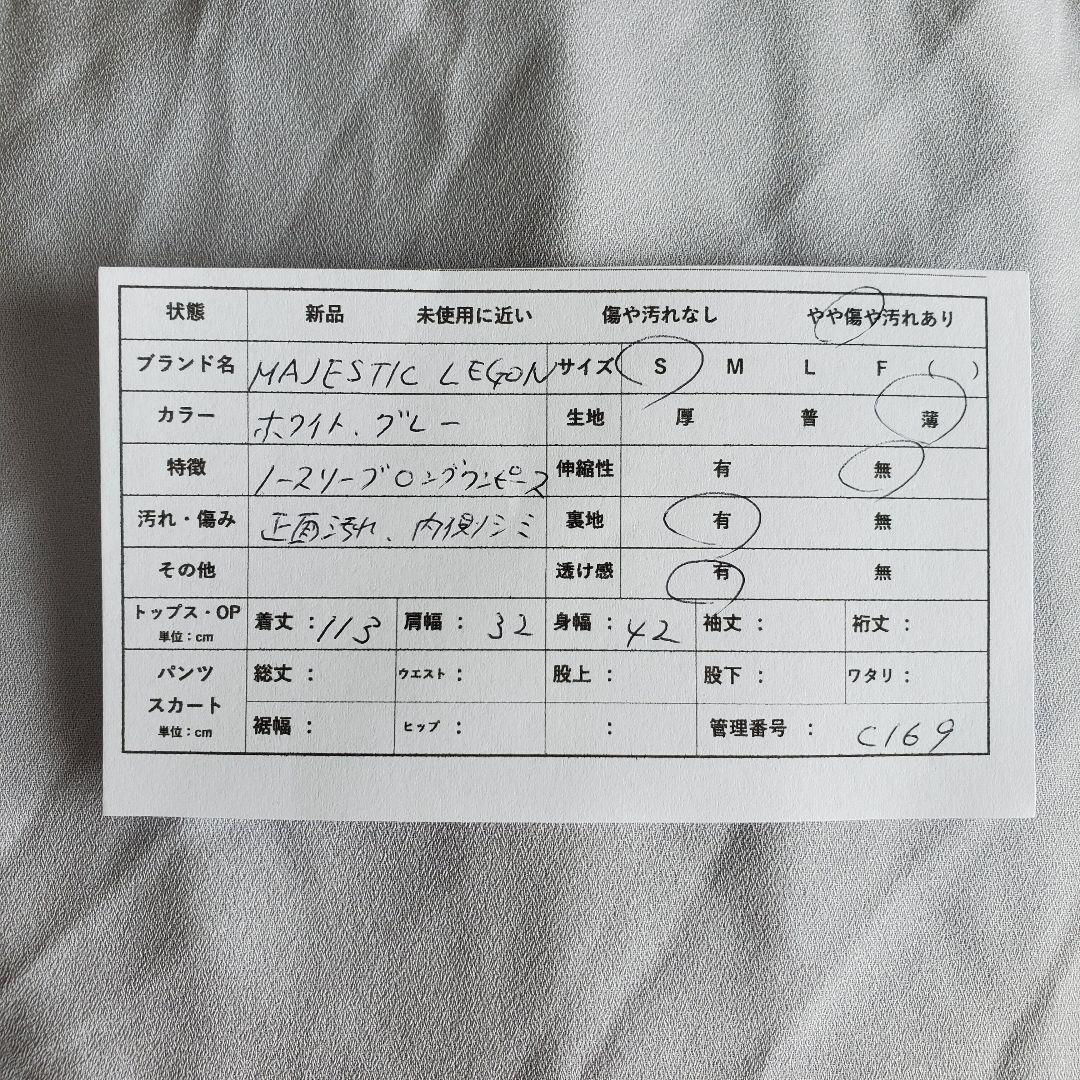 状態 新品 未使用に近い 傷や汚れなし やや傷や汚れあり
ブランド名 MAJESTIC LEGON サイズ S M L F ( )
カラー ホワイト、グレー 生地 厚 普 薄
特徴 ノースリーブロングワンピース 伸縮性 有 無
汚れ・傷み 正面汚れ、内側シミ 裏地 有 無
その他 透け感 有 無
トップス・OP 単位:cm 着丈:113 肩幅:32 身幅:42 袖丈: 裄丈:
パンツ スカート 単位:cm 総丈: ウエスト: 股上: 股下: ワタリ:
裾幅: ヒップ: : 管理番号: C169